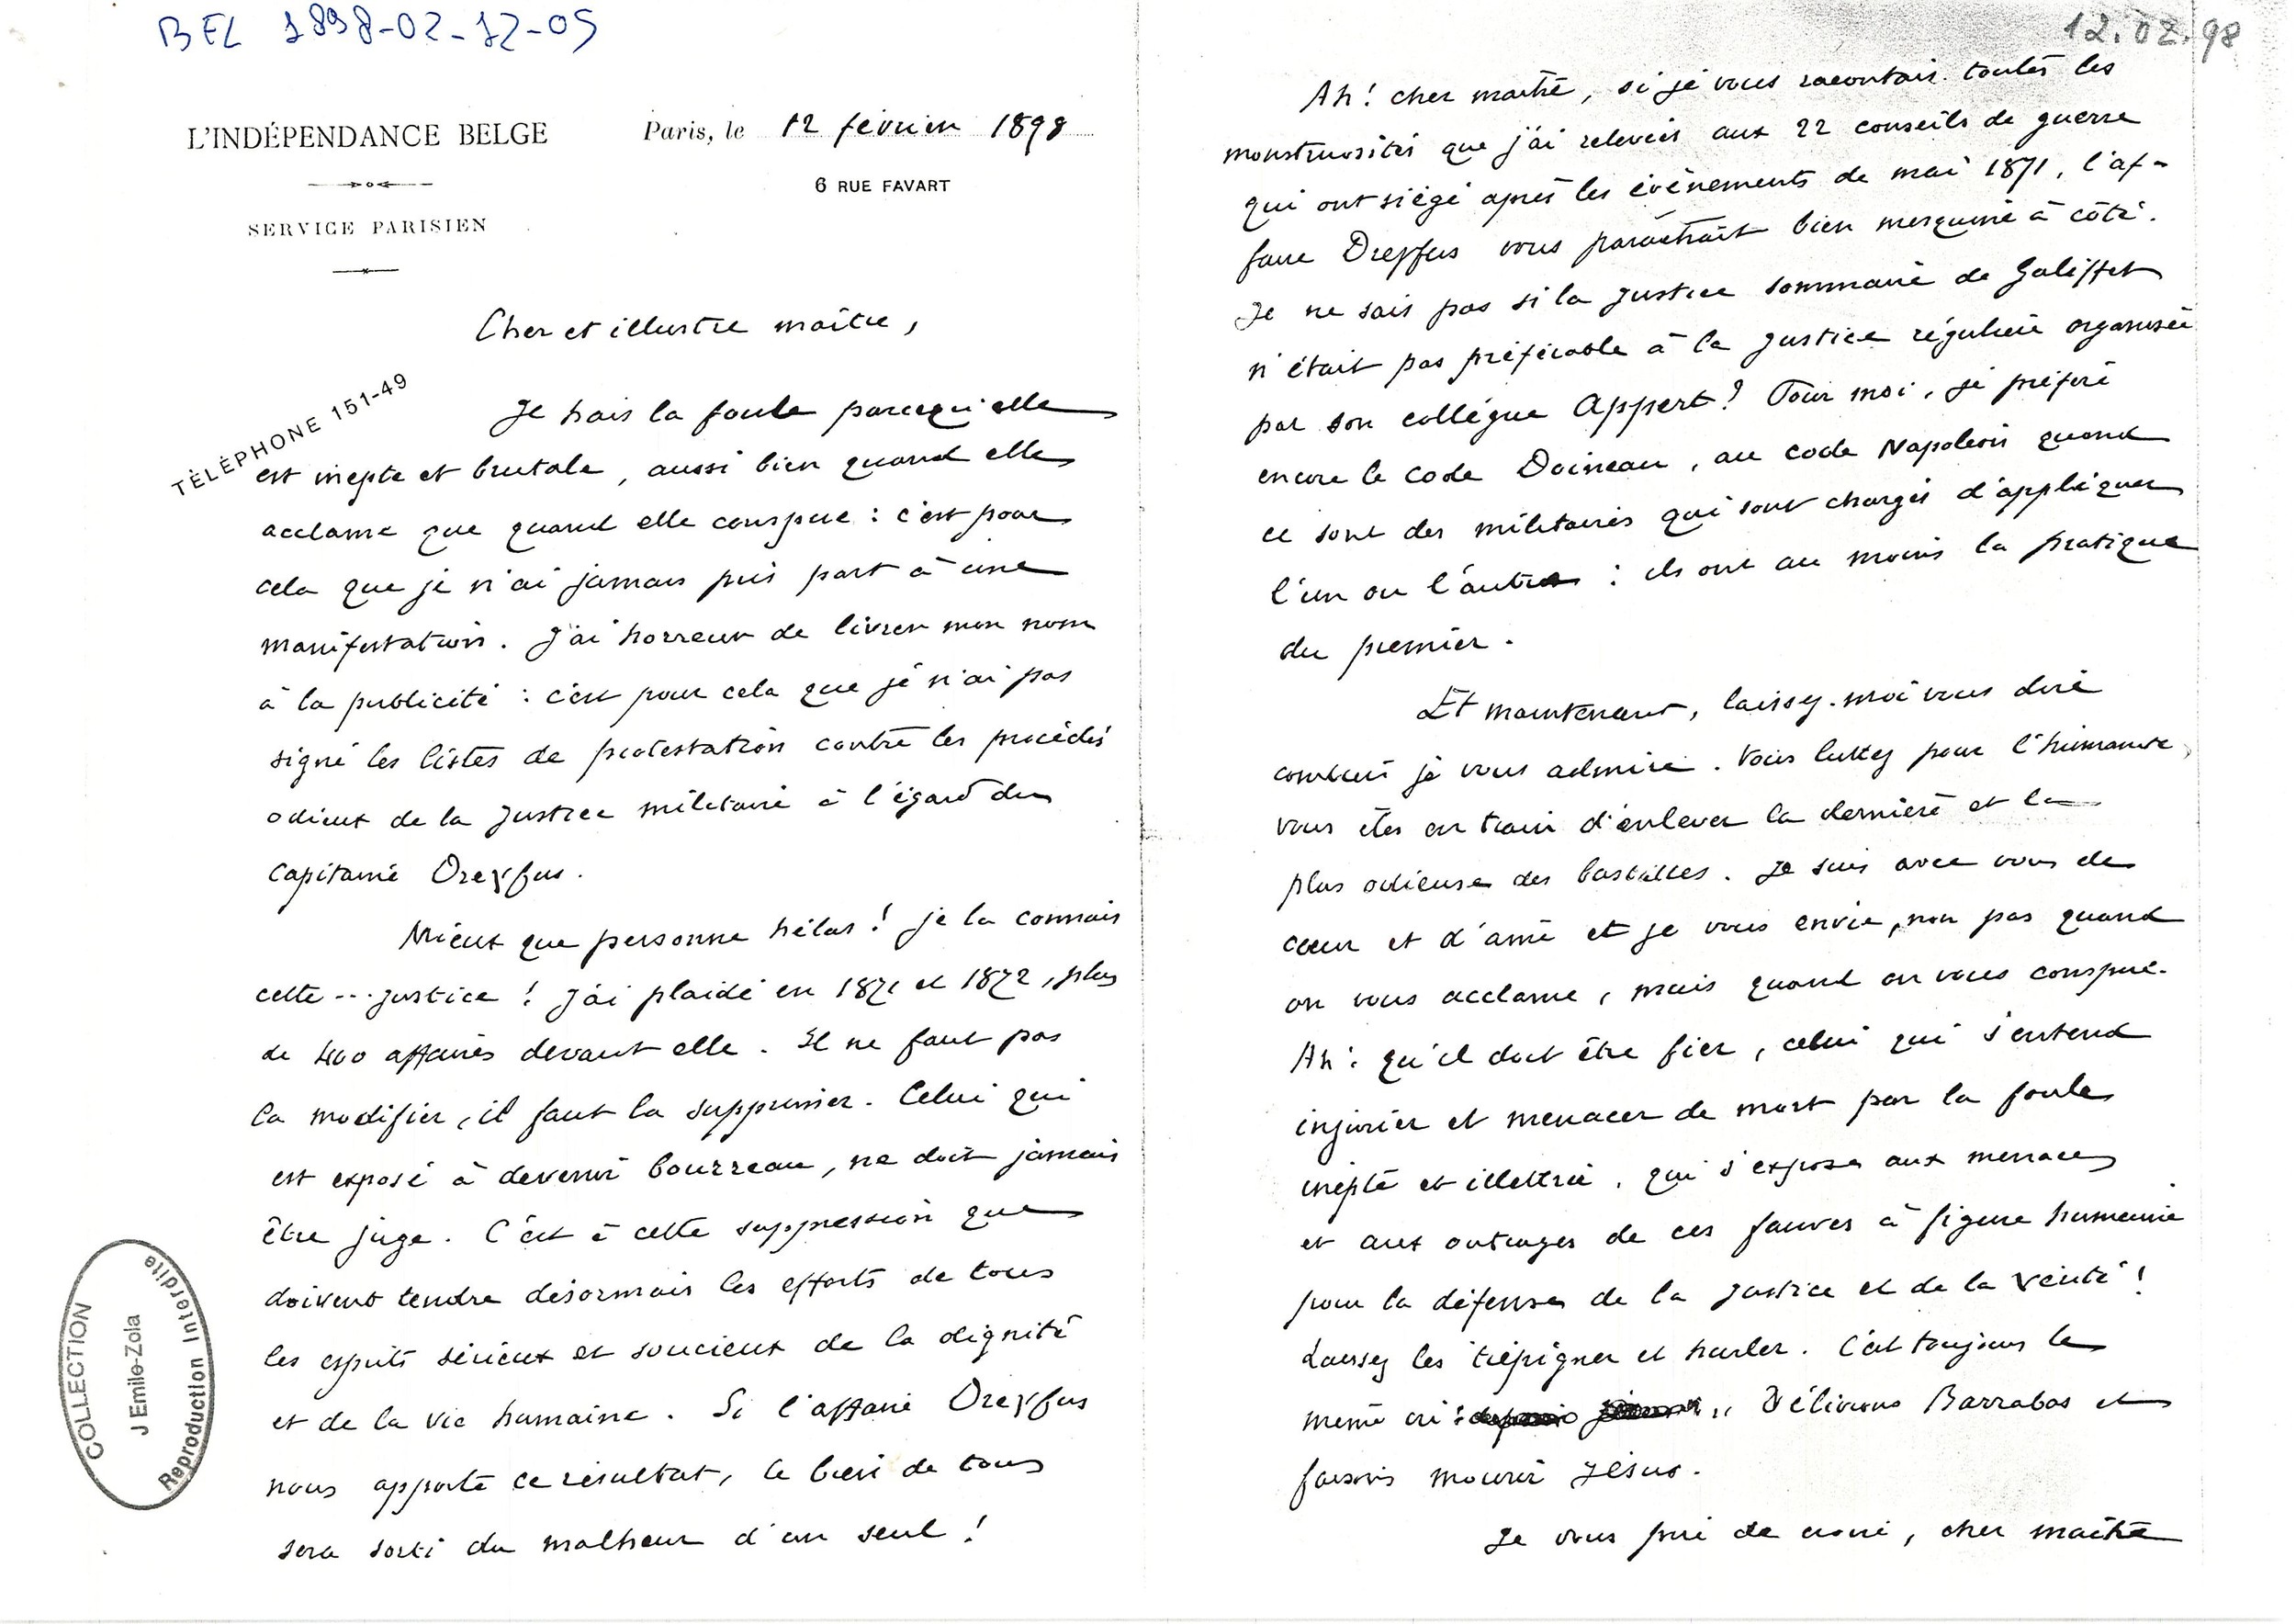 BEL 1898-02-12-05
L'INDÉPENDANCE BELGE
SERVICE PARISIEN
Paris, le 12 février 1898
6 RUE FAVART
TÉLÉPHONE 151-49
Cher et illustre maître,
Je hais la foule parcequ'elle
est inepte et brutale, aussi bien quand elle
acclame que quand elle conspue : c'est pour
cela que je n'ai jamais pris part à une
manifestation. J'ai horreur de livrer mon nom
à la publicité : c'est pour cela que je n'ai pas
signé les listes de protestation contre les procédés
odieux de la justice militaire à l'égard du
capitaine Dreyfus.
Mieux que personne hélas ! je la connais
cette ... justice ! J'ai plaidé en 1871 et 1872, plus
de 400 affaires devant elle. Il ne faut pas
la modifier, il faut la supprimer. Celui qui
est exposé à devenir bourreau, ne doit jamais
être juge. C'est à cette suppression que
doivent tendre désormais les efforts de tous
les esprits sérieux et soucieux de la dignité
et de la vie humaine. Si l'affaire Dreyfus
nous apporte ce résultat, le bien de tous
sera sorti du malheur d'un seul !
COLLECTION
J Emile-Zola
Reproduction Interdite
12.02.98
Ah ! cher maître, si je vous racontais toutes les
monstruosités que j'ai relevées aux 22 conseils de guerre
qui ont siégé après les évènements de mai 1871, l'af-
faire Dreyfus vous paraîtrait bien mesquine à côté.
Je ne sais pas si la justice sommaire de Galiffet
n'était pas préférable à la justice régulière organisée
par son collégue Appert ? Pour moi, je préfère
encore le code Doineau, au code Napoléon quand
ce sont des militaires qui sont chargés d'appliquer
l'un ou l'autre : ils ont au moins la pratique
du premier.
Et maintenant, laissez-moi vous dire
combien je vous admire. Vous luttez pour l'humanité,
vous êtes en train d'enlever la dernière et la
plus odieuse des bastilles. Je suis avec vous de
cœur et d'âme et je vous envie, non pas quand
on vous acclame, mais quand on vous conspue.
Ah ! qu'il doit être fier, celui qui s'entend
injurier et menacer de mort par la foule
inepte et illettrée, qui s'expose aux menaces
et aux outrages de ces fauves à figure humaine
pour la défense de la justice et de la vérité !
Laissez les trépigner et hurler. C'est toujours le
même cri : " Délivrons Barrabas et
faisons mourir Jésus.
Je vous prie de croire, cher maître